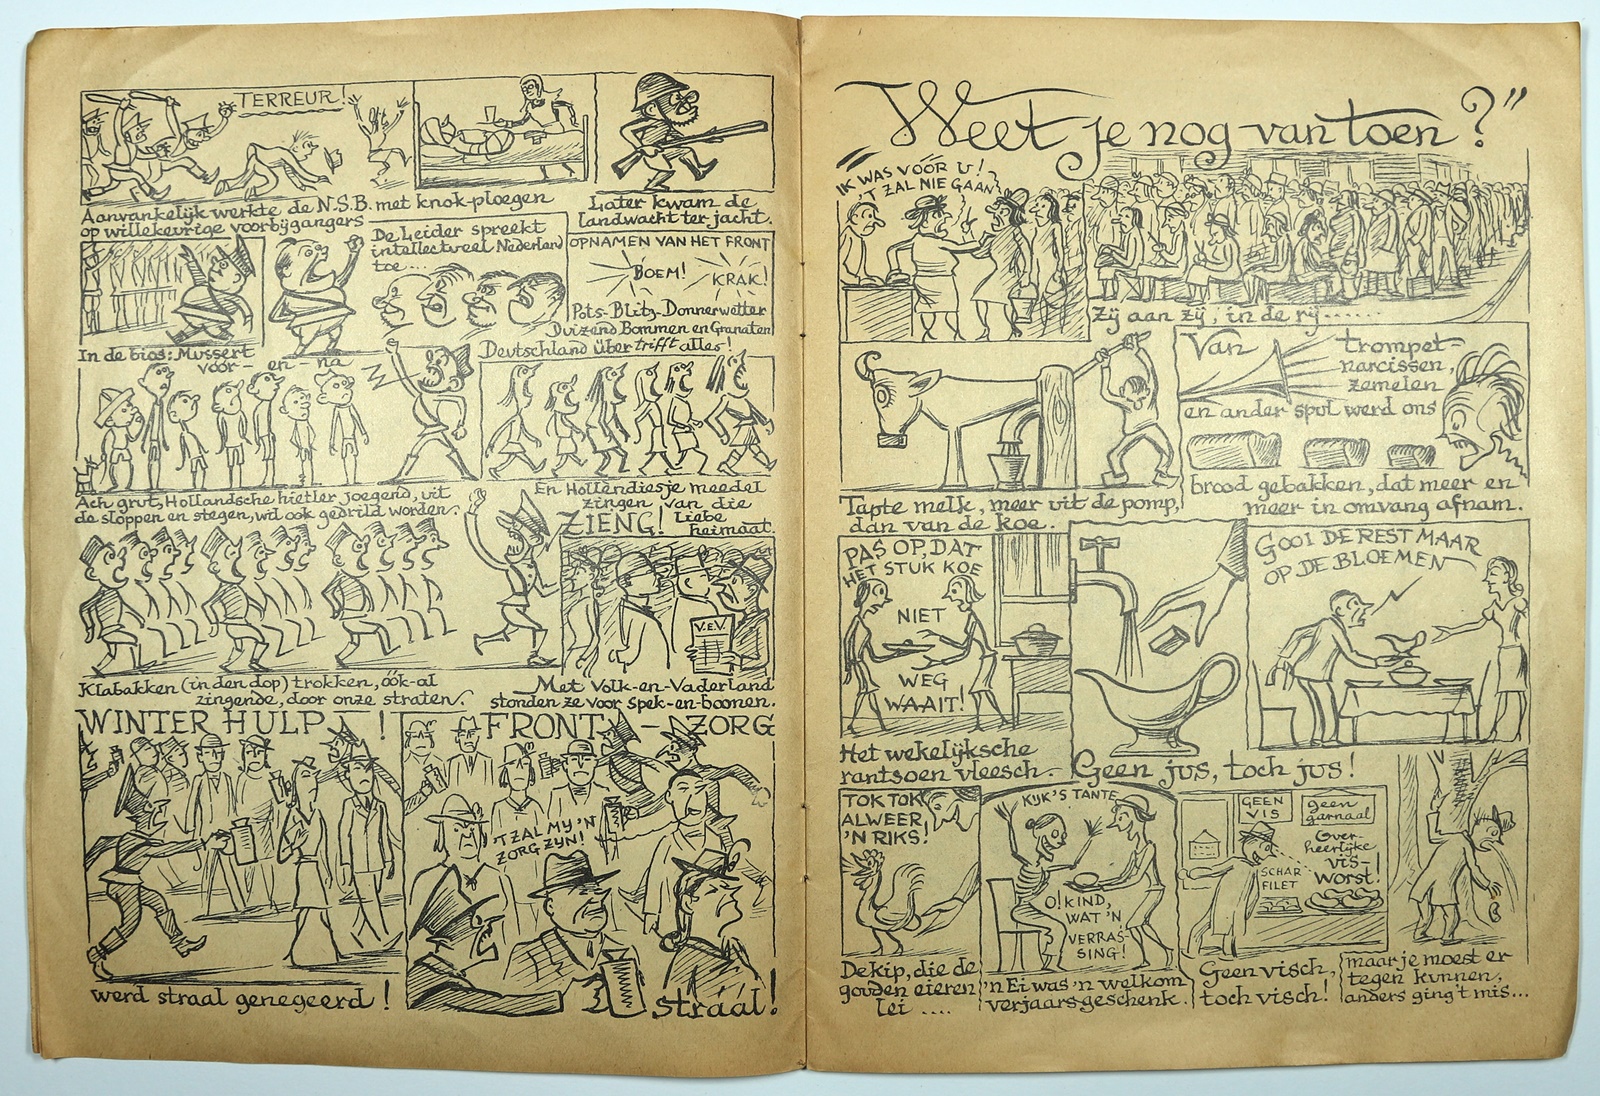 TERREUR!
Aanvankelijk werkte de N.S.B. met knok-ploegen
op willekeurige voorbijgangers
Later kwam de
landwacht ter jacht.
De Leider spreekt
intellectueel Nederland
toe....
OPNAMEN VAN HET FRONT
BOEM!
KRAK!
Pots-Blitz-Donnerwetter
Duizend Bommen en Granaten
In de bios: Mussert
vóór- en- na
Deutschland über trifft alles!
Ach grut, Hollandsche hietler joegend, uit
de sloppen en stegen, wil ook gedrild worden.
En Hollendiesje meedel
zingen van die
Liebe
heimaat.
ZIENG!
V.e.V.
Klabakken (in den dop) trokken, óók-al
zingende, door onze straten.
Met Volk-en-Vaderland
stonden ze voor spek-en-boonen.
WINTER HULP!
werd straal genegeerd!
FRONT - ZORG
'T ZAL MY 'N
ZORG ZYN!
straal!
"Weet je nog van toen?"
IK WAS VÓÓR U!
'T ZAL NIE GAAN
Zij aan zij, in de rij......
Tapte melk, meer uit de pomp,
dan van de koe.
Van trompet-
narcissen,
zemelen
en ander spul werd ons
brood gebakken, dat meer en
meer in omvang afnam.
PAS OP, DAT
HET STUK KOE
NIET
WEG
WAAIT!
Het wekelijksche
rantsoen vleesch.
Geen jus, toch jus!
GOOI DE REST MAAR
OP DE BLOEMEN
TOK TOK
ALWEER
'N RIKS!
De kip, die de
gouden eieren
lei ....
KIJK'S TANTE
O! KIND,
WAT 'N
VERRAS-
SING!
'n Ei was 'n welkom
verjaarsgeschenk.
GEEN
VIS
geen
garnaal
Over-
heerlijke
VIS-
WORST!
SCHAR
FILET
Geen visch,
toch visch!
maar je moest er
tegen kunnen,
anders ging't mis...